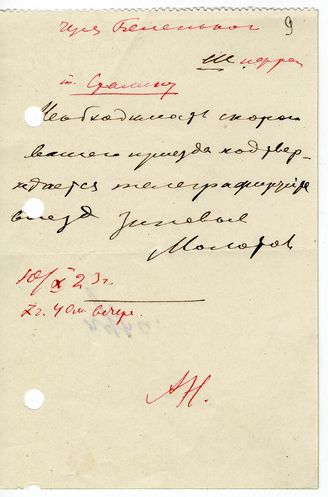 через Беленького 9
Шифром
т. Сталину
Необходимость скорого
вашего приезда подтвер-
ждается телеграфируйте
выезд Зиновьев
Молотов
10/X 23 г.
7 ч. 40 м. вечера.
АН.